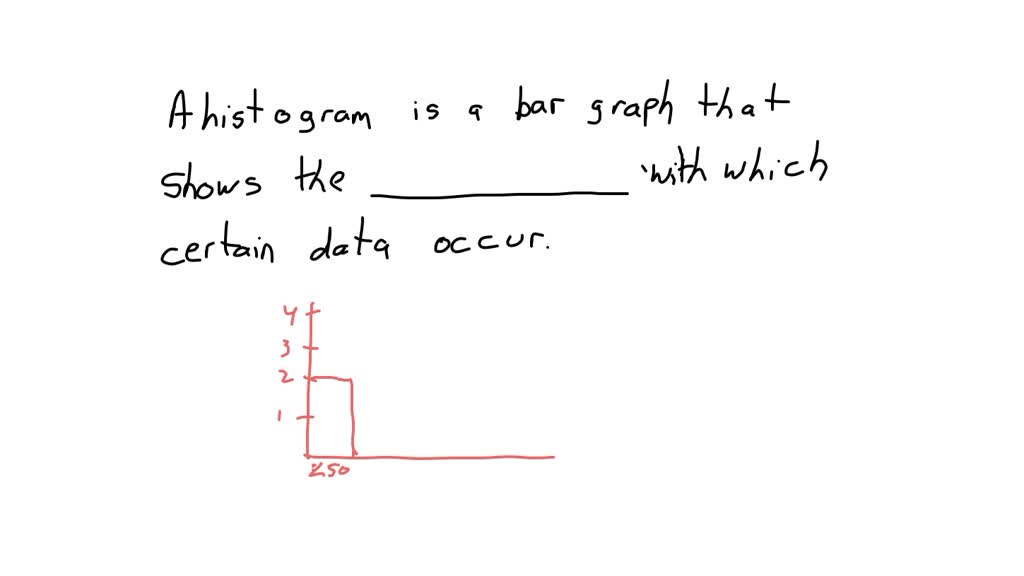 A histogram is a bar graph that
shows the __________ with which
certain data occur.
4
3
2
1
<50